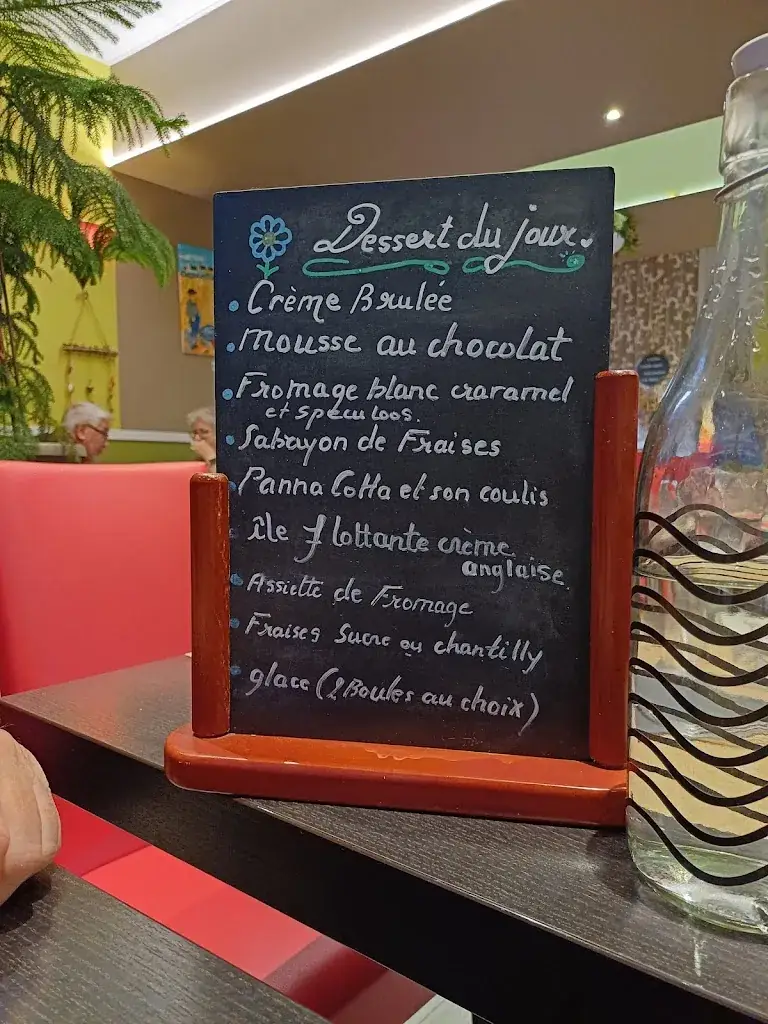 Dessert du jour.
• Crème Brulée
• mousse au chocolat
• Fromage blanc craramel
et speculoos.
• Sabayon de Fraises
• Panna Cotta et son coulis
île flottante crème
anglaise
• Assiette de Fromage
• Fraises Sucre ou chantilly
• glace (2 Boules au choix)